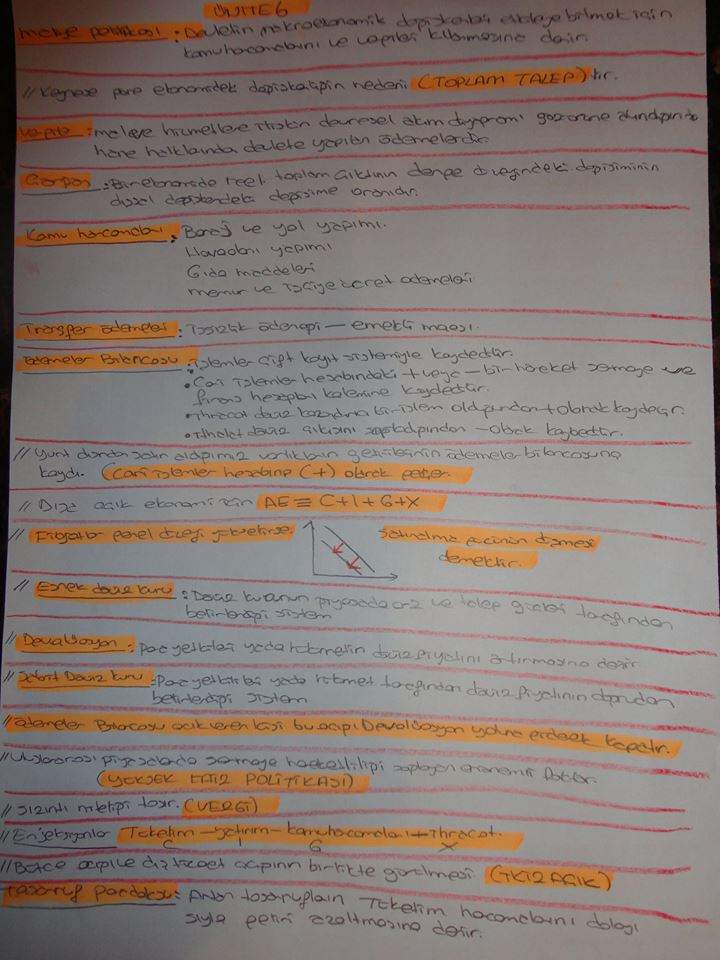 ÜNİTE 6
maliye politikası : Devletin makroekonomik değişkenleri etkileyebilmek için
kamu harcamalarını ve vergileri kullanmasına denir.
// Keynese göre ekonomideki dalgalanmanın nedeni (TOPLAM TALEP) tir.
Vergiler : mal ve hizmetlere ilişkin devresel akım diyagramı göz önüne alındığında
hane halklarından devlete yapılan ödemelerdir.
Çarpan : Bir ekonomide reel toplam çıktının denge düzeyindeki değişiminin
otonom değişkendeki değişime oranıdır.
Kamu harcamaları : Baraj ve yol yapımı.
Havaalanı yapımı
Gıda maddeleri
memur ve işçiye ücret ödemeleri
Transfer ödemeleri : İşsizlik ödeneği — emekli maaşı.
Ödemeler Bilançosu : • işlemler çift kayıt sistemiyle kaydedilir.
• Cari işlemler hesabındaki + veya — bir hareket sermaye ve
finans hesapları kalemine kaydedilir.
• İhracat döviz kazandırıcı bir işlem olduğundan + olarak kaydedilir.
• İthalat döviz çıkışını sağladığından — olarak kaydedilir.
// Yurt dışında satın aldığımız varlıkların getirilerinin ödemeler bilançosuna
kaydı. (Cari işlemler hesabına (+) olarak geçer.
// Dışa açık ekonomi için AE ≡ C+I+G+X
// Fiyatlar genel düzeyi yükselirse satınalma gücünün düşmesi
demektir.
// Esnek döviz kuru : Döviz kurunun piyasada arz ve talep güçleri tarafından
belirlendiği sistem
// Devalüasyon : para yetkilileri yada hükümetin döviz fiyatını artırmasına denir.
// Sabit Döviz kuru : Para yetkilileri yada hükümet tarafından döviz fiyatının doğrudan
belirlendiği sistem
// Ödemeler Bilançosu açık veren ülke bu açığı Devalüasyon yoluna giderek kapatır.
// Uluslararası piyasalarda sermaye hareketliliği sağlayan ekonomik faktör.
(YÜKSEK FAİZ POLİTİKASI)
// Sızıntı niteliği taşır. (VERGİ)
// Enjeksiyonlar Tüketim — yatırım — kamu harcamaları + ihracat.
C I G X
// Bütçe açığı ve dış ticaret açığının birlikte görülmesi (İKİZ AÇIK)
Tasarruf paradoksu : Artan tasarrufların Tüketim harcamalarını dolayı
sıyla geliri azaltmasına denir.